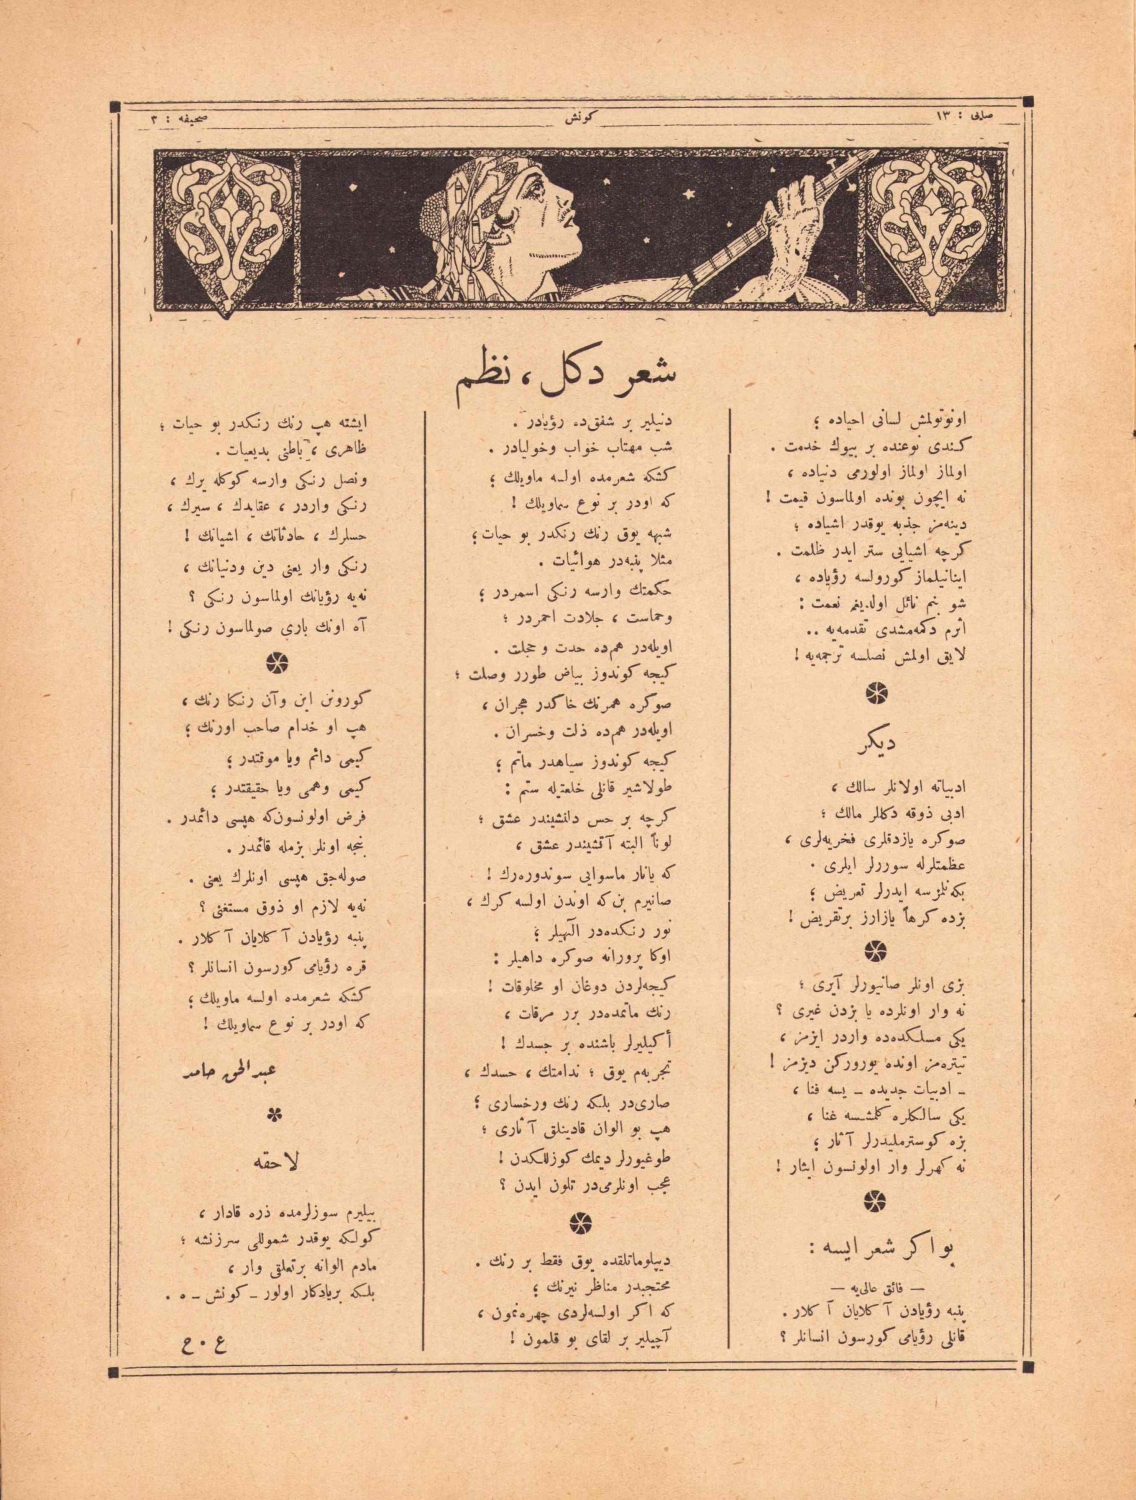 صایی : ۱۳
كونش
صحیفه : ۳
شعر دكل ، نظم
اونوتولمش لسانی احیاده ؛
كندی نوعنده بر بیوك خدمت .
اولماز اولماز اولورمی دنیاده ،
نه ایچون بونده اولماسون قیمت !
دینه‌مز جذبه یوقدر اشیاده ؛
كرچه اشیایی ستر ایدر ظلمت .
اینانیلماز كورولسه رؤیاده ،
شو بنم نائل اولدیغم نعمت :
اثرم دكمه‌مشدی تقدمه‌یه ..
لایق اولمش نصلسه ترجمه‌یه !
دیكر
ادبیاته اولانلر سالك ،
ادبی ذوقه دكللر مالك ؛
صوكره یازدقلری فخریه‌لری ،
عظمتلرله سوررلر ایلری .
بكه‌نلمزسه ایدرلر تعریض ؛
بزده كرهاً یازارز برتقریض !
بزی اونلر صانیورلر آیری ؛
نه وار اونلرده یا بزدن غیری ؟
یكی مسلكده‌ده واردر ایزمز ،
تیتره‌مز اونده یورورکن دیزمز !
ـ ادبیات جدیده ـ یسه فنا ،
یكی سالكلره كلمشسه غنا ،
بزه كوسترملیدرلر آثار ؛
نه كهرلر وار اولونسون ایثار !
بو اكر شعر ایسه :
— فائق عالی‌یه —
پنبه رؤیادن آكلایان آكلار .
قانلی رؤیامی كورسون انسانلر ؟
دنیلیر بر شفق‌ده رؤیادر .
شب مهتاب خواب وخولیادر .
كشكه شعرمده اولسه ماویلك ؛
كه اودر بر نوع سماویلك !
شبهه یوق رنك رنكدر بو حیات ؛
مثلا پنبه‌در هوائیات .
حكمتك وارسه رنكی اسمردر ؛
وحماست ، جلادت احمردر ؛
اویله‌در هم‌ده حدت و خجلت .
كیجه كوندوز بیاض طورر وصلت ؛
صوكره همرنك خاكدر هجران ،
اویله‌در هم‌ده ذلت وخسران .
كیجه كوندوز سیاهدر ماتم ؛
طولاشیر قانلی خلعتیله ستم :
كرچه بر حس دلنشیندر عشق ؛
لوناً البته آتشیندر عشق ،
كه یانار ماسوایی سوندوره‌رك !
صانیرم بن‌كه اوندن اولسه كرك ،
نور رنكده‌در آلهیلر ؛
اوكا پرورانه صوكره داهیلر :
كیجه‌لردن دوغان او مخلوقات !
رنك ماتمده‌در برر مرقات ،
أكیلیرلر باشنده بر جسدك !
تجربه‌م یوق ؛ ندامتك ، حسدك ،
صاری‌در بلكه رنك ورخساری ؛
هپ بو الوان قادینلق آثاری ؛
طوغیورلر دیمك كوزللكدن !
عجب اونلرمی‌در تلون ایدن ؟
دیپلوماتلقده یوق فقط بر رنك .
محتجبدر مناظر نیرنك ؛
كه اكر اولسه‌لردی چهره‌نمون ،
آچیلیر بر لقای بو قلمون !
ایشته هپ رنك رنكدر بو حیات ؛
ظاهری ، باطنی بدیعیات .
ونصل رنكی وارسه كوكله یرك ،
رنكی واردر ، عقایدك ، سیرك ،
حسلرك ، حادثاتك ، اشیانك !
رنكی وار یعنی دین ودنیانك ،
نه‌یه رؤیانك اولماسون رنكی ؟
آه اونك باری صولماسون رنكی !
كورونن این وآن رنكا رنك ،
هپ او خدام صاحب اورنك ؛
كیمی دائم ویا موقتدر ؛
كیمی وهمی ویا حقیقتدر ؛
فرض اولونسون‌كه هپسی دائمدر .
بنجه اونلر بزمله قائمدر .
صوله‌جق هپسی اونلرك یعنی .
نه‌یه لازم او ذوق مستغنی ؟
پنبه رؤیادن آكلایان آكلار .
قره رؤیامی كورسون انسانلر ؟
كشكه شعرمده اولسه ماویلك ؛
كه اودر بر نوع سماویلك !
عبدالحق حامد
لاحقه
بیلیرم سوزلرمده ذره قادار ،
كولكه یوقدر شموللی سرزنشه ؛
مادم الوانه برتعلق وار ،
بلكه بریادكار اولور ـ كونش ـ ه .
ع . ح